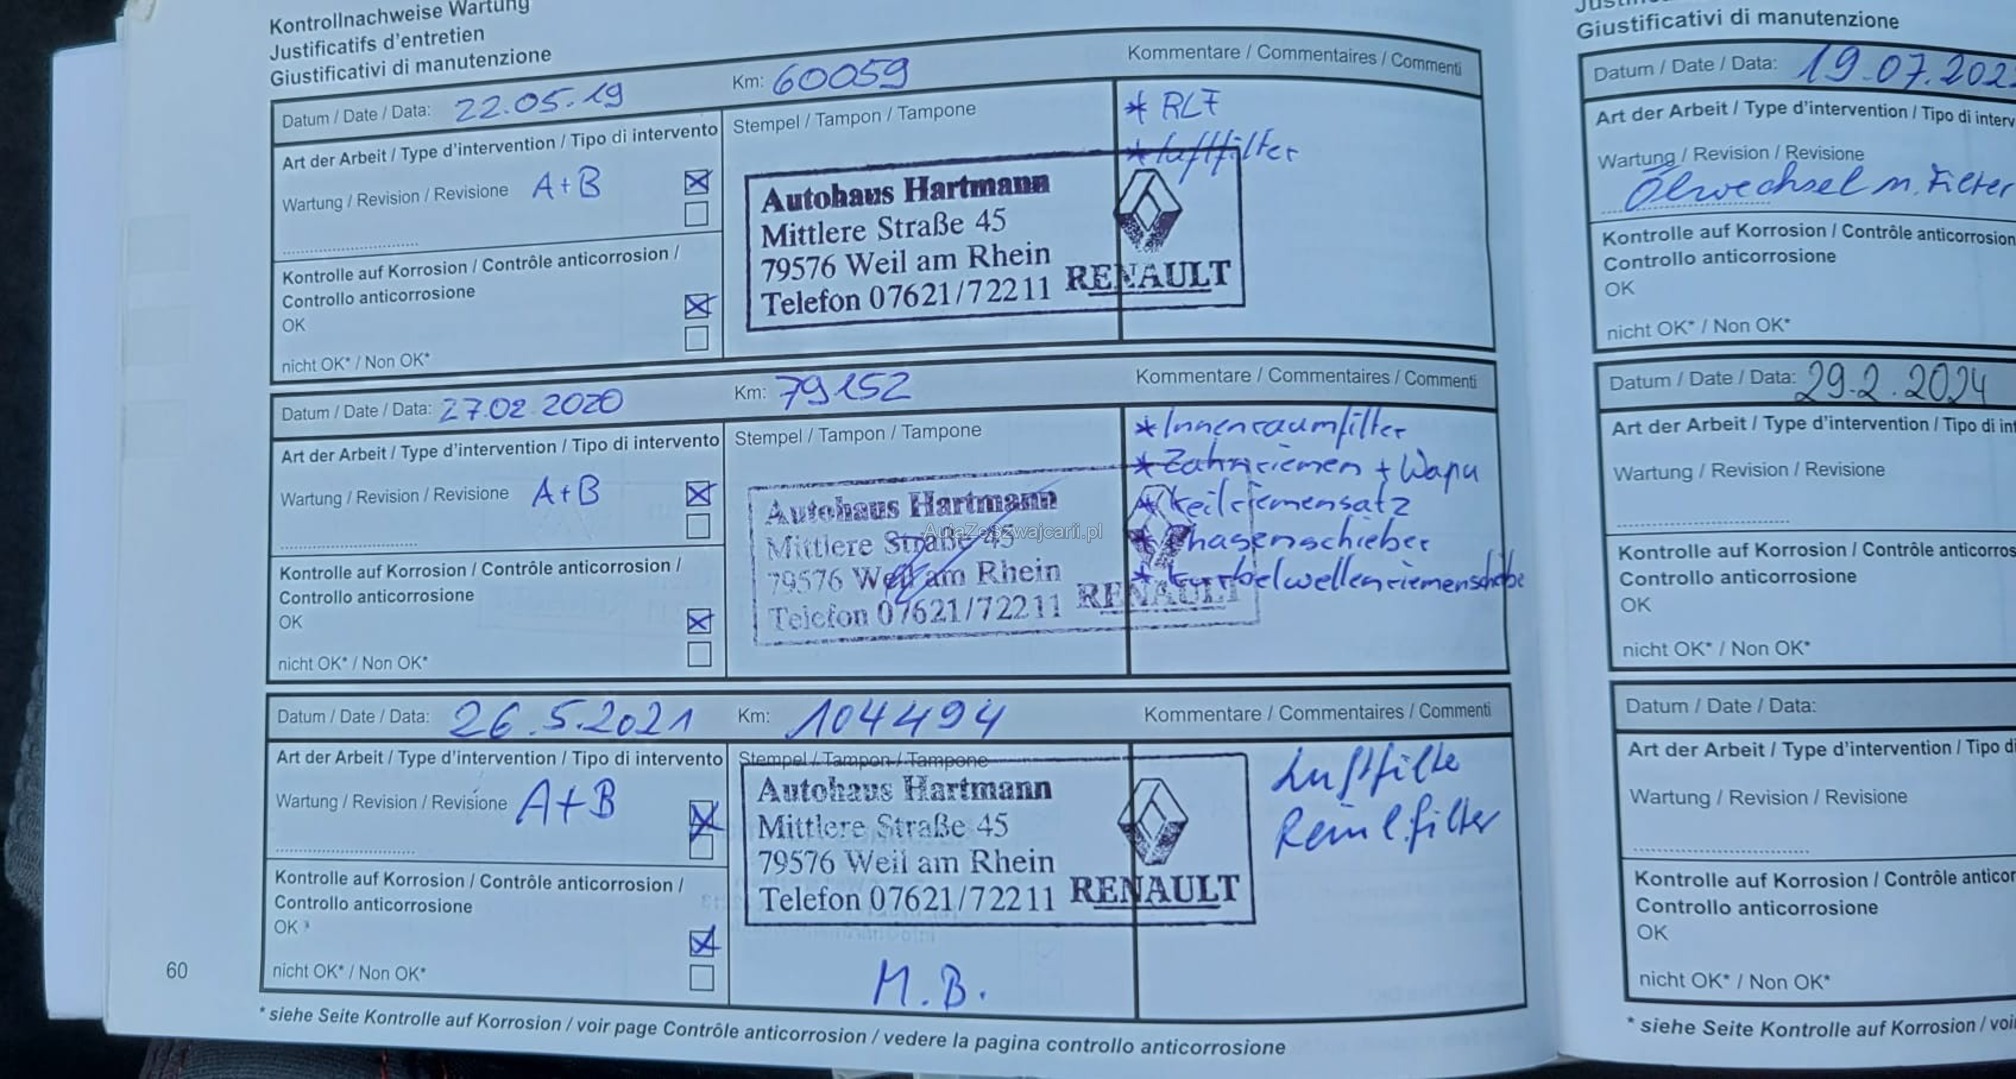 Kontrollnachweise Wartung
Justificatifs d'entretien
Giustificativi di manutenzione
Datum / Date / Data: 22.05.19 Km: 60059 Kommentare / Commentaires / Commenti
Art der Arbeit / Type d'intervention / Tipo di intervento Stempel / Tampon / Tampone * RLF
* Luftfilter
Wartung / Revision / Revisione A+B
Autohaus Hartmann
Mittlere Straße 45
79576 Weil am Rhein
Telefon 07621/72211 RENAULT
Kontrolle auf Korrosion / Contrôle anticorrosion /
Controllo anticorrosione
OK
nicht OK* / Non OK*
Datum / Date / Data: 27.02.2020 Km: 79152 Kommentare / Commentaires / Commenti
Art der Arbeit / Type d'intervention / Tipo di intervento Stempel / Tampon / Tampone
* Innenraumfilter
* Zahnriemen + Wapu
* Keilriemensatz
* Phasenschieber
* Kurbelwellenriemenscheibe
Wartung / Revision / Revisione A+B
Autohaus Hartmann
Mittlere Straße 45
79576 Weil am Rhein
Telefon 07621/72211 RENAULT
AutaZeSzwajcarii.pl
Kontrolle auf Korrosion / Contrôle anticorrosion /
Controllo anticorrosione
OK
nicht OK* / Non OK*
Datum / Date / Data: 26.5.2021 Km: 104494 Kommentare / Commentaires / Commenti
Art der Arbeit / Type d'intervention / Tipo di intervento Stempel / Tampon / Tampone
Luftfilte
filter
Wartung / Revision / Revisione A+B
Autohaus Hartmann
Mittlere Straße 45
79576 Weil am Rhein
Telefon 07621/72211 RENAULT
Kontrolle auf Korrosion / Contrôle anticorrosion /
Controllo anticorrosione
OK
nicht OK* / Non OK*
M.B.
60
* siehe Seite Kontrolle auf Korrosion / voir page Contrôle anticorrosion / vedere la pagina controllo anticorrosione
Giustificativi di manutenzione
Datum / Date / Data: 19.07.202
Art der Arbeit / Type d'intervention / Tipo di interv
Wartung / Revision / Revisione
Ölwechsel m. Filter
Kontrolle auf Korrosion / Contrôle anticorrosion
Controllo anticorrosione
OK
nicht OK* / Non OK*
Datum / Date / Data: 29.2.2024
Art der Arbeit / Type d'intervention / Tipo di int
Wartung / Revision / Revisione
Kontrolle auf Korrosion / Contrôle anticorros
Controllo anticorrosione
OK
nicht OK* / Non OK*
Datum / Date / Data:
Art der Arbeit / Type d'intervention / Tipo di
Wartung / Revision / Revisione
Kontrolle auf Korrosion / Contrôle anticor
Controllo anticorrosione
OK
nicht OK* / Non OK*
* siehe Seite Kontrolle auf Korrosion / voi